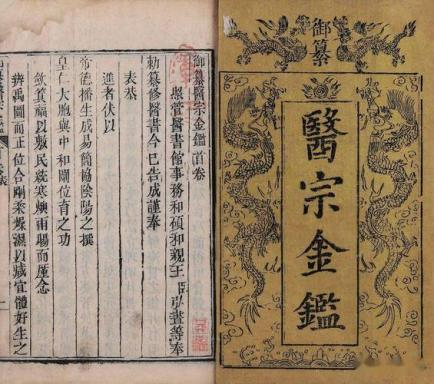 御纂
醫宗金鑑
御纂醫宗金鑑首卷
照管醫書館事務和碩和親王臣弘晝等奉
勅纂修醫書今已告成謹奉
表恭
進者伏以
常德播生成易簡協陰陽之撰
皇仁大胞與中和關位育之功
斂箕福以敷民疾寒燠雨暘而廑念
辨禹圖而正位合剛柔燥濕以咸宜體好生之